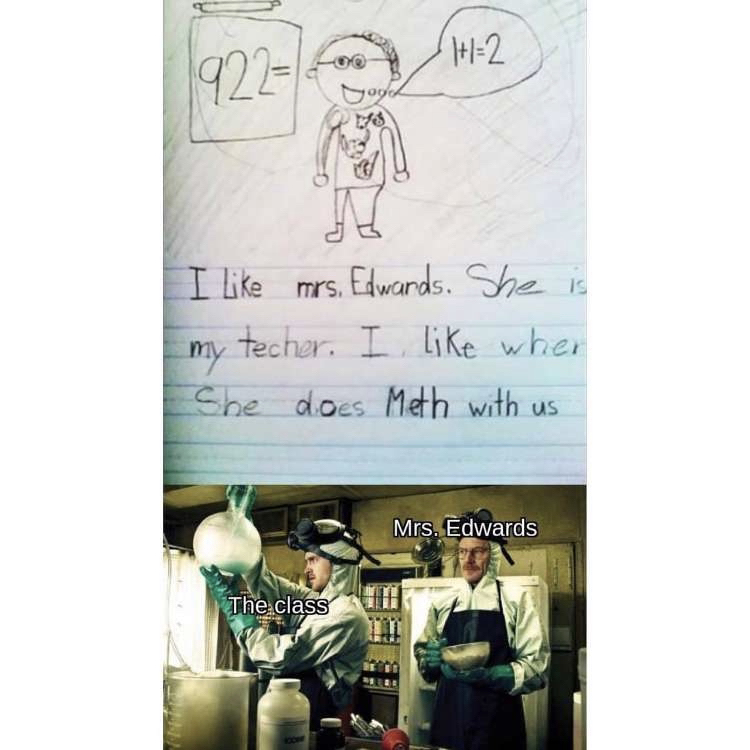 922=
1+1=2
I like mrs. Edwards. She is
my techer. I like when
She does Meth with us
Mrs. Edwards
The class